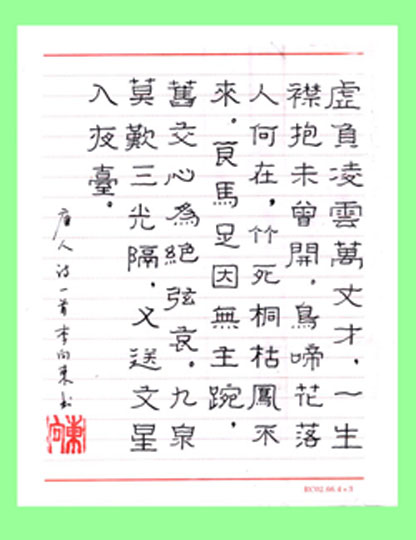 虛負凌雲萬丈才，一生
襟抱未曾開。鳥啼花落
人何在，竹死桐枯鳳不
來。良馬足因無主踠，
舊交心為絕弦哀。九泉
莫歎三光隔，又送文星
入夜臺。
唐人诗一首李向东书
向東